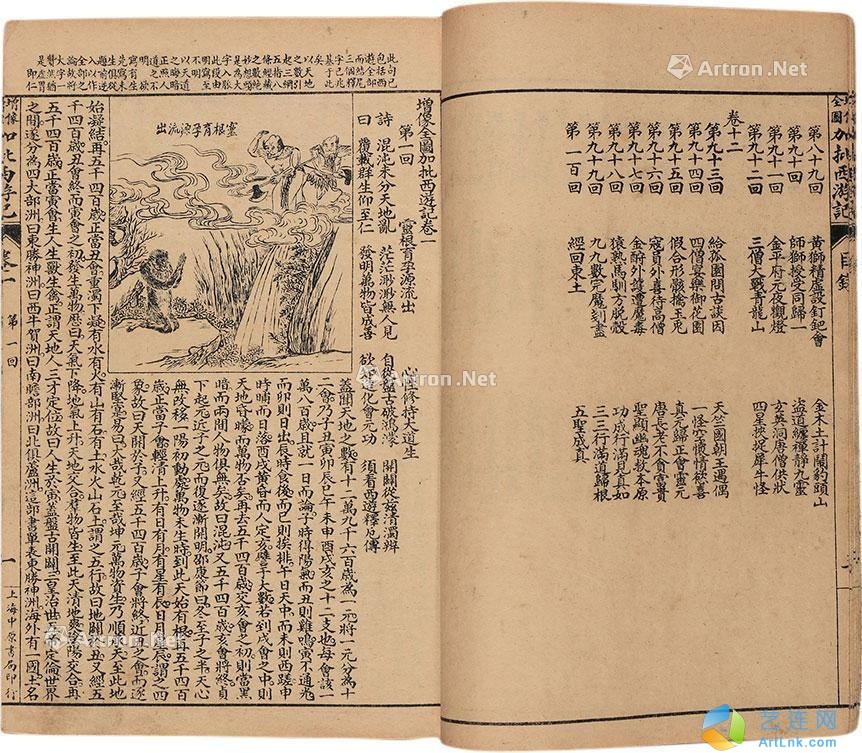 增像全圖加批西游記
目錄
第八十九回 黃獅精虛設釘鈀會 金木土計鬧豹頭山
第九十回 師獅授受同歸一 盜道纏禪靜九靈
第九十一回 金平府元夜觀燈 玄英洞唐僧供狀
第九十二回 三僧大戰青龍山 四星挾捉犀牛怪
卷十二
第九十三回 給孤園問古談因 天竺國朝王遇偶
第九十四回 四僧宴樂御花園 一怪空懷情欲喜
第九十五回 假合形骸擒玉兔 真元歸正會靈元
第九十六回 寇員外喜待高僧 唐長老不貪富貴
第九十七回 金酬外護遭魔毒 聖顯幽魂救本原
第九十八回 猿熟馬馴方脫殼 功成行滿見真如
第九十九回 九九數完魔刬盡 三三行滿道歸根
第一百回 經回東土 五聖成真
增像全圖加批西遊記卷一
第一回 靈根育孕源流出 心性修持大道生
詩曰 混沌未分天地亂 茫茫渺渺無人見 自從盤古破鴻濛 開闢從茲清濁辨
覆載群生仰至仁 發明萬物皆成善 欲知造化會元功 須看西遊釋厄傳
靈根育孕源流出
蓋聞天地之數有十二萬九千六百歲為一元將一元分為十
二會乃子丑寅卯辰巳午未申酉戌亥之十二支也每會該一
萬八百歲且就一日而論子時得陽氣而丑則雞鳴寅不通光
而卯則日出辰時食後而巳則挨排午日天中而未則西蹉申
時晡而日落酉戌黃昏而人定亥譬于大數若到戌會之中則
天地昏曚而萬物否矣再去五千四百歲交亥會之初則當黑
暗而兩間人物俱無矣故曰混沌又五千四百歲亥會將終貞
下起元近子之元而復逐漸開明邵康節曰冬至子之半天心
無改移一陽初動處萬物未生時到此天始有根再五千四百
歲正當子會輕清上升有日有月有星有辰日月星辰謂之四
象故曰天開於子又經五千四百歲子會將終近丑之會而逐
漸堅實易曰大哉乾元至哉坤元萬物資生乃順承天至此地
始凝結再五千四百歲正當丑會重濁下凝有水有火有山有石有土水火山石土謂之五行故曰地闢於丑又經五
千四百歲丑會終而寅會之初發生萬物歷曰天氣下降地氣上升天地交合群物皆生至此天清地爽陰陽交合再
五千四百歲正當寅會生人生獸生禽正謂天地人三才定位故曰人生於寅蓋盤古開闢三皇治世五帝定倫世界
之間遂分為四大部洲曰東勝神洲曰西牛賀洲曰南贍部洲曰北俱蘆洲這部書單表東勝神洲海外有一國土名
卷一
第一回
一
上海中原書局印行
Artron.Net
Artron.Net
Artron.Net
Artron.Net
艺连网
ArtLnk.com